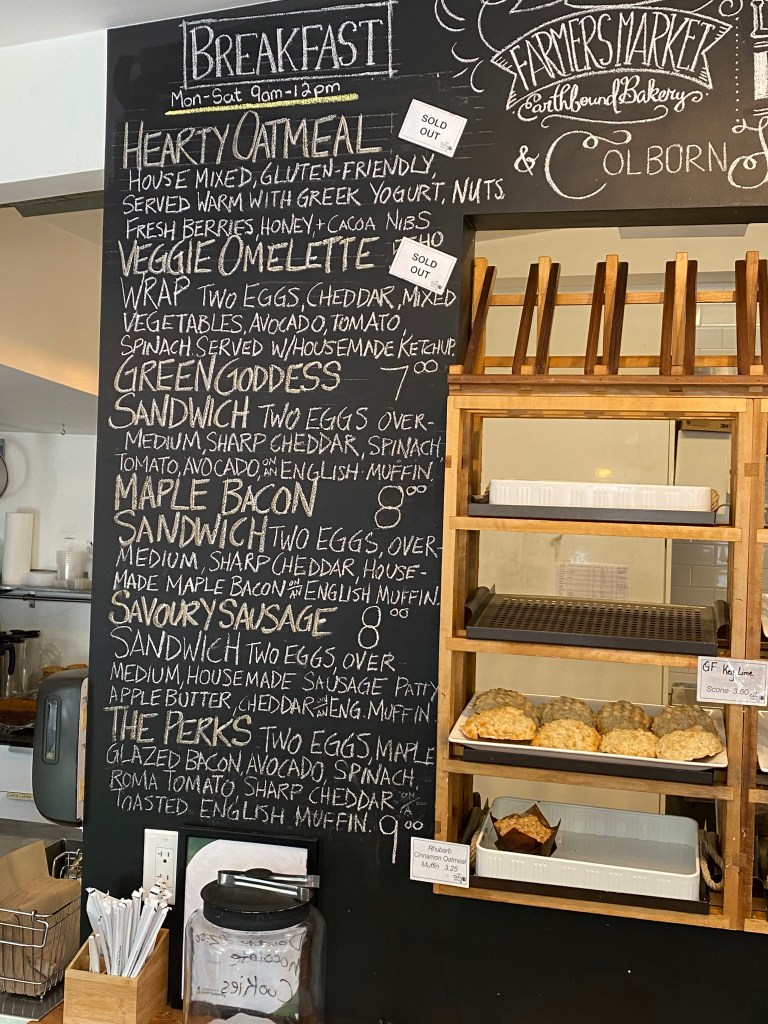 BREAKFAST
Mon-Sat 9am-12pm
HEARTY OATMEAL
SOLD
OUT
HOUSE MIXED, GLUTEN-FRIENDLY,
SERVED WARM WITH GREEK YOGURT, NUTS,
FRESH BERRIES, HONEY, + CACOA NIBS
VEGGIE OMELETTE
SOLD
OUT
WRAP TWO EGGS, CHEDDAR, MIXED
VEGETABLES, AVOCADO, TOMATO,
SPINACH. SERVED W/HOUSEMADE KETCHUP.
GREEN GODDESS 7.00
SANDWICH TWO EGGS OVER-
MEDIUM, SHARP CHEDDAR, SPINACH,
TOMATO, AVOCADO, ON AN ENGLISH MUFFIN.
MAPLE BACON 8.00
SANDWICH TWO EGGS, OVER-
MEDIUM, SHARP CHEDDAR, HOUSE-
MADE MAPLE BACON ON AN ENGLISH MUFFIN.
SAVOURY SAUSAGE 8.00
SANDWICH TWO EGGS, OVER
MEDIUM, HOUSEMADE SAUSAGE PATTY,
APPLE BUTTER, CHEDDAR ON AN ENG. MUFFIN.
THE PERKS TWO EGGS, MAPLE
GLAZED BACON, AVOCADO, SPINACH,
ROMA TOMATO, SHARP CHEDDAR ON A
TOASTED ENGLISH MUFFIN. 9.00
FARMERS MARKET
Earthbound Bakery
& COLBORN
GF Key Lime
Scone 3.50
Rhubarb
Cinnamon Oatmeal
Muffin 3.25
Chocolate
Cookies